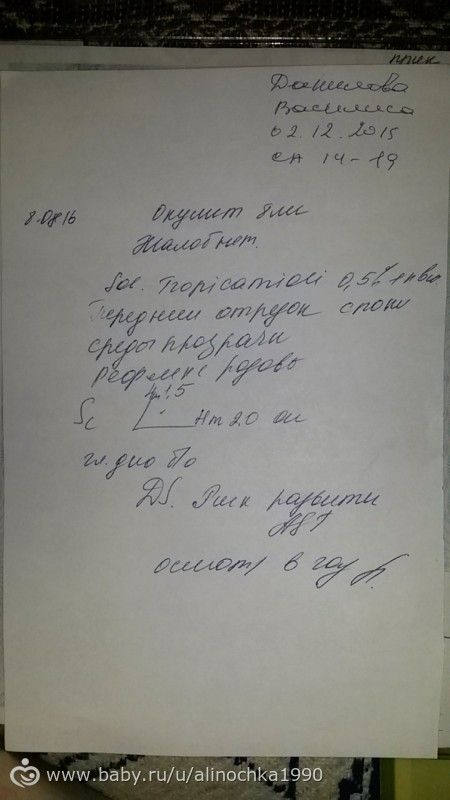 Данилова
Василиса
02.12.2015
СА 14-19
8.08.16 Окулист 8 мес
Жалоб нет.
Sol. Tropicamidi 0,5%
Передний отрезок спокн
среды прозрачн
Рефлекс розовы
Sc 1,5 Hm 2.0 ou
гл. дно б/о
DS. Риск развити
осмотр в год
www.baby.ru/u/alinochka1990